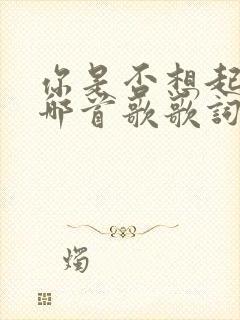 你是否想起
那首歌歌詞
燭